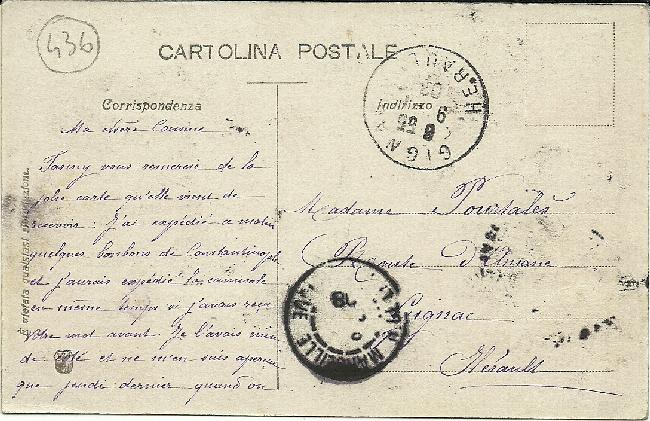 436
CARTOLINA POSTALE
Corrispondenza
Indirizzo
Ma chère Cousine
Fanny vous remercie de la
jolie carte qu'elle vient de
recevoir : J'ai expédié ce matin
quelques bonbons de Constantinople
et j'aurais expédié la
en même temps si j'avais reçu
votre mot avant. Je l'avais
de côté et ne m'en suis aperçu
que jeudi dernier quand on
Madame Pourtalès
Route d'Aniane
Gignac
Hérault
GIGNAC
HERAULT
MARSEILLE